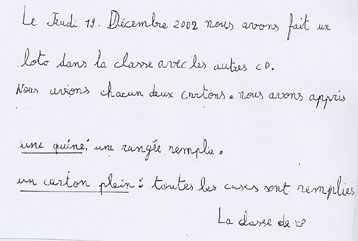 Le Jeudi 19. Décembre 2002 nous avons fait un
loto dans la classe avec les autres CP.
Nous avions chacun deux cartons. nous avons appris
une quine: une rangée remplie.
un carton plein: toutes les cases sont remplies.
La classe de CP